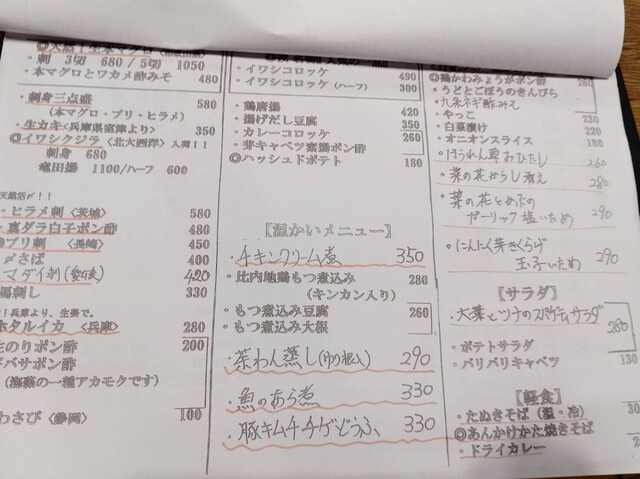 ◎天然!生本マグロ
・刺 3切 680 / 5切 1050
・本マグロとワカメ酢みそ 480
・刺身三点盛 580
(本マグロ・ブリ・ヒラメ)
・生カキ〈兵庫県室津より〉 350
◎イワシクジラ〈北大西洋〉入荷!!
刺身 680
竜田揚 1100/ハーフ 600
天然活〆!!
・ヒラメ刺〈茨城〉 580
・真ダラ白子ポン酢 480
◎ブリ刺〈長崎〉 450
〆さば 400
マダイ刺 420
馬刺し 330
兵庫より、生姜で。
ホタルイカ〈兵庫〉 280
生のりポン酢 200
ギバサポン酢
(海藻の一種アカモクです)
わさび〈静岡〉 100
・イワシコロッケ 490
・イワシコロッケ(ハーフ) 300
・鶏唐揚 420
・揚げだし豆腐 350
・カレーコロッケ 260
・芽キャベツ素揚ポン酢
◎ハッシュドポテト 180
【温かいメニュー】
・チキンクリーム煮 350
・比内地鶏もつ煮込み 280
(キンカン入り)
・もつ煮込み豆腐 260
・もつ煮込み大根
・茶わん蒸し(ゆり根入) 290
・魚のあら煮 330
・豚キムチチゲどうふ 330
◎鶏かわみょうがポン酢
・うどとごぼうのきんぴら
・九条ネギ酢みそ
・やっこ 230
・白菜漬け 220
・オニオンスライス 180
・ほうれん草おひたし 260
・菜の花からし和え 280
・菜の花とかぶの
ガーリック塩いため 290
・にんにく芽きくらげ
玉子いため 290
【サラダ】
・大葉とツナのスパゲティサラダ 280
・ポテトサラダ
・バリバリキャベツ 130
【軽食】
・たぬきそば(温・冷)
◎あんかけかた焼きそば
・ドライカレー